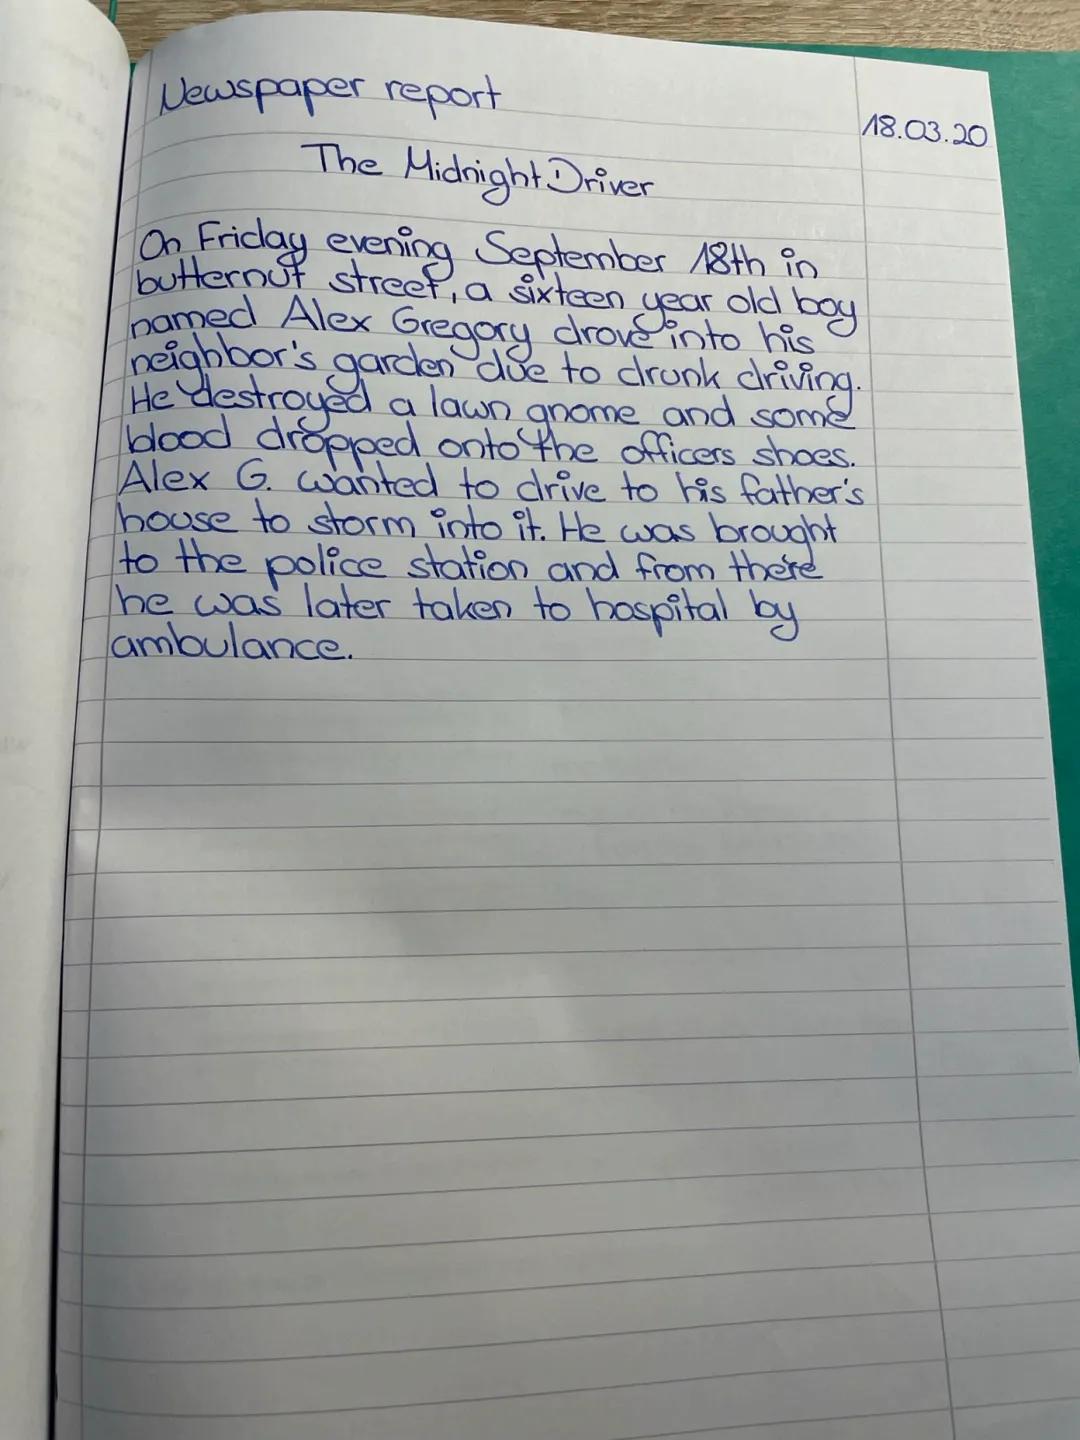 Newspaper report
18.03.20
The Midnight Driver
On Friday evening September 18th in
butternut street, a sixteen year old boy
named Alex Gregory drove into his
neighbor's garden due to drunk driving.
He destroyed a lawn gnome and some
blood dropped onto the officers shoes.
Alex G. wanted to drive to his father's
house to storm into it. He was brought
to the police station and from there
he was later taken to hospital by
ambulance.